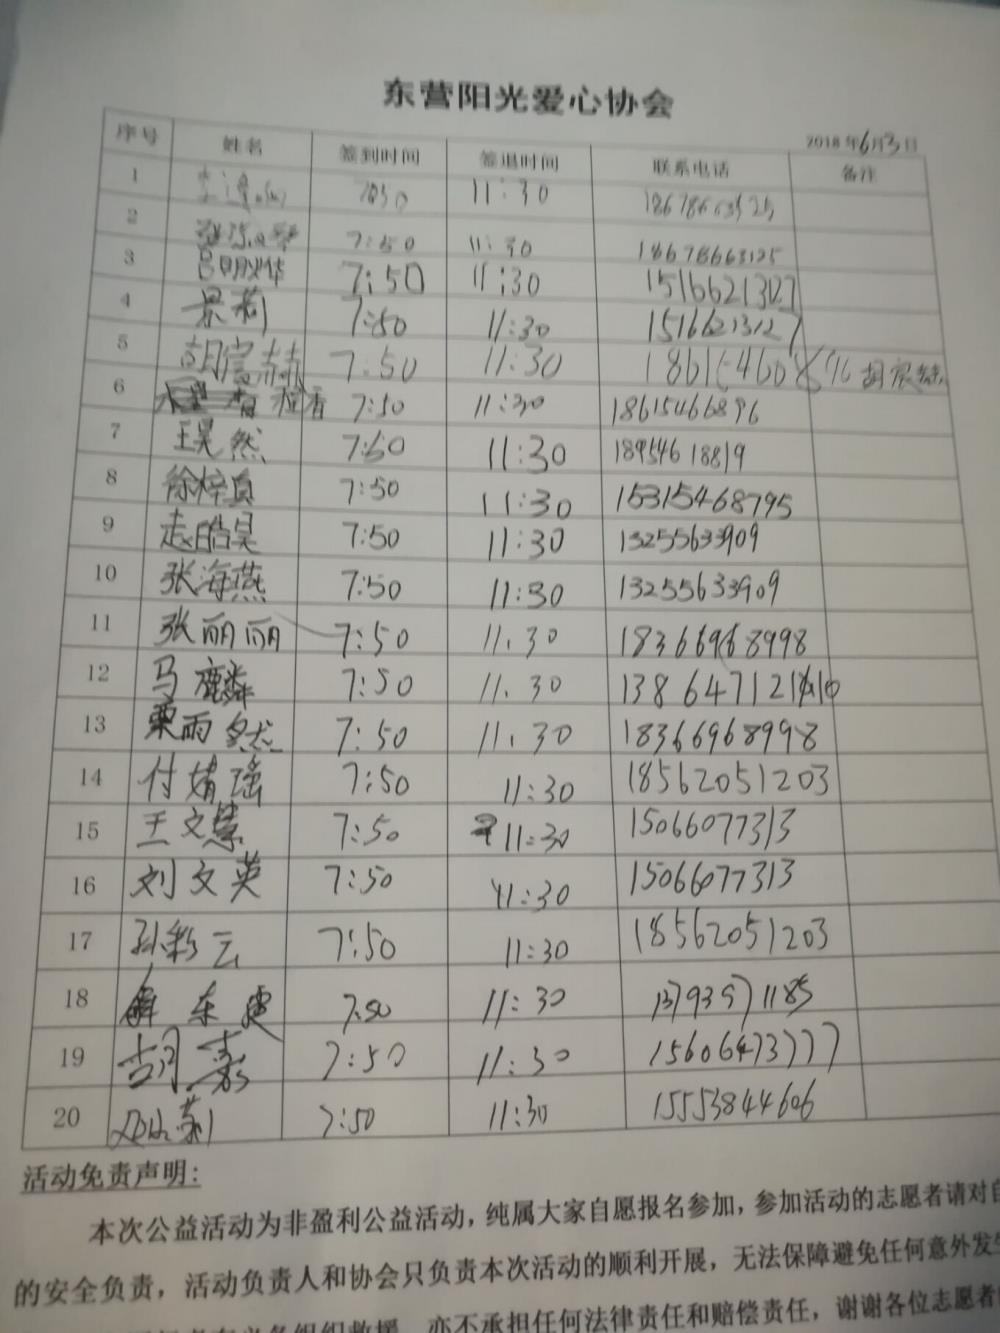 东营阳光爱心协会
2018年6月3日
序号 姓名 签到时间 签退时间 联系电话 备注
1 11:30
2 7:50 11:30 18678663125
3 吕明烨 7:50 11:30 15166213127
4 景莉 7:50 11:30 15166213127
5 胡宸赫 7:50 11:30 胡宸赫
6 7:50 11:30 18615466896
7 王昊然 7:50 11:30 18954618819
8 徐梓真 7:50 11:30 15315468795
9 赵皓昊 7:50 11:30 13255633909
10 张海燕 7:50 11:30 13255633909
11 张丽丽 7:50 11.30 18366968998
12 马麟 7:50 11.30
13 栗雨然 7:50 11.30 18366968998
14 付婧瑶 7:50 11:30 18562051203
15 王文慧 7:50 11:30 15066077313
16 刘文英 7:50 11:30 15066077313
17 孙彩云 7:50 11:30 18562051203
18 解东霆 7:50 11:30 13793571185
19 7:50 11:30 15606473777
20 7:50 11:30 15553844606
活动免责声明:
本次公益活动为非盈利公益活动，纯属大家自愿报名参加，参加活动的志愿者请对自
的安全负责，活动负责人和协会只负责本次活动的顺利开展，无法保障避免任何意外发生
组织救援，亦不承担任何法律责任和赔偿责任，谢谢各位志愿者